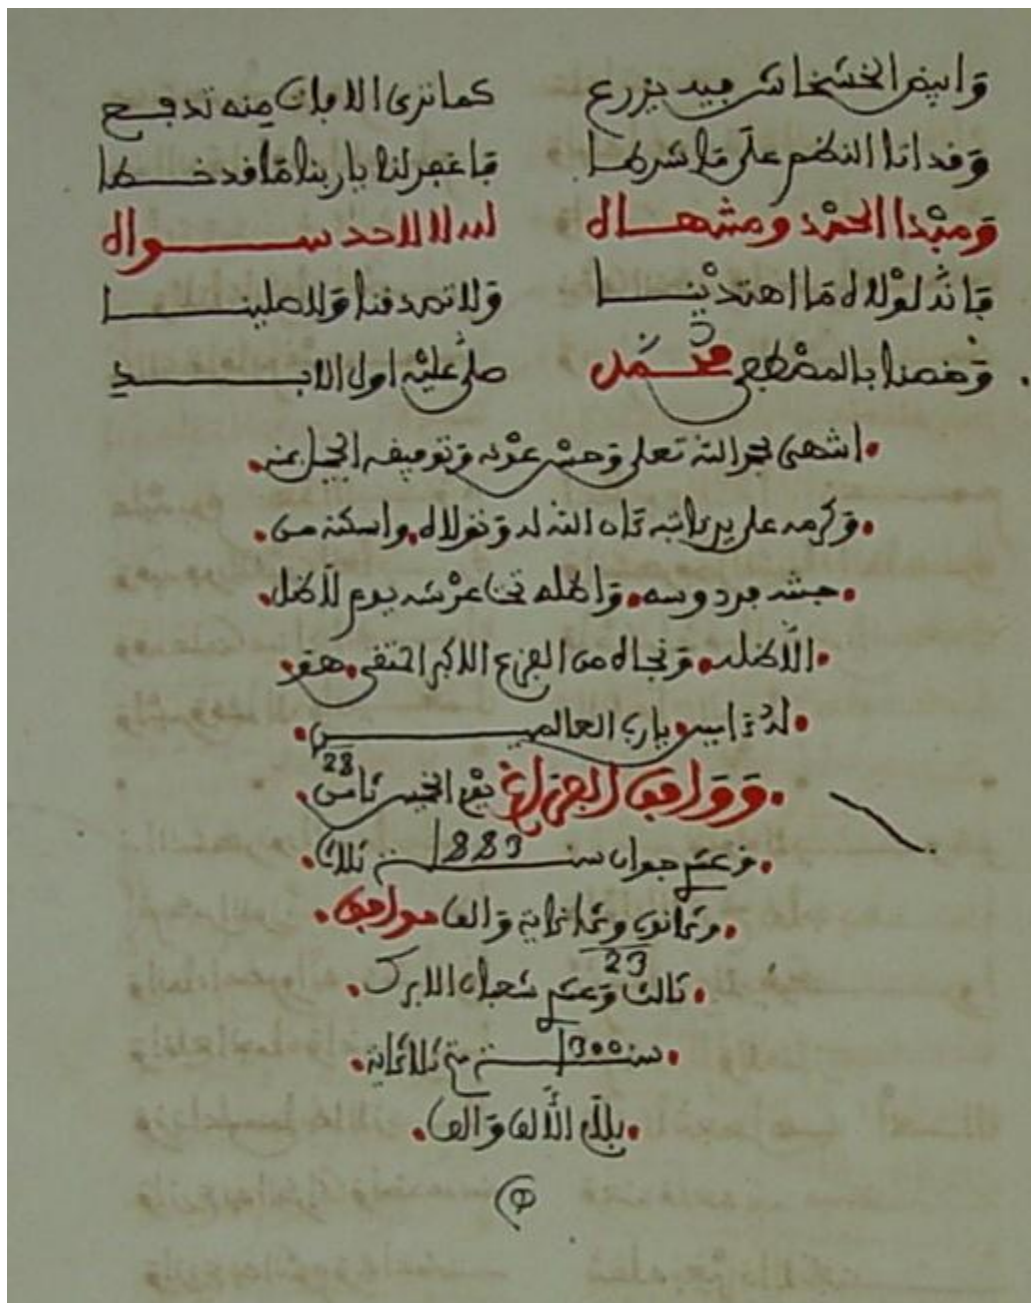 وابيض الخشخاش فيه يزرع كما ترى الالبان منه تدفع
وقد اتا النظم على ما شرطا فاغفر لنا يا ربنا ما قد خطا
ومبدا الحمد ومنتهاه لله لا لاحد سواه
فانه لولاه ما اهتدينا ولا تصدقنا ولا صلينا
وخصنا بالمصطفى محمد صلى عليه اول الابد
انتهى بحمد الله تعلى وحسن عونه وتوفيقه الجميل بمنه
وكرمه على يد ناسخه كان الله له وتولاه واسكنه من
جنته فردوسه واظله تحت عرشه يوم لا ظل
الا ظله ونجاه من الفزع الاكبر
ءامين يا رب العالمين
ووافق الفراغ يوم الخميس ثامن 28
وعشر جوان سنة 1883 ثلاث
وثمانون وثمانماية والف موافق
ثالث وعشر 23 شعبان الابرك
سنة 1300 ثلاثماية
والف